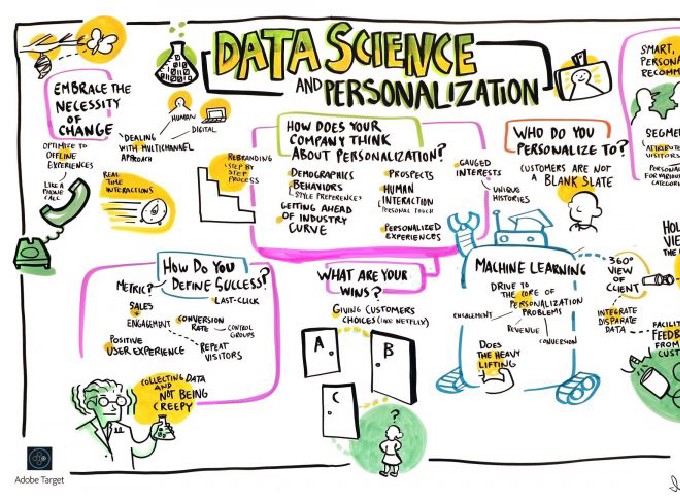 DATA SCIENCE
AND PERSONALIZATION
EMBRACE THE
NECESSITY
OF
CHANGE
OPTIMIZE TO
OFFLINE
EXPERIENCES
LIKE A
PHONE
CALL
REAL
TIME
INTERACTIONS
HUMAN
DIGITAL
DEALING
WITH MULTICHANNEL
APPROACH
REBRANDING
STEP BY
STEP
PROCESS
HOW DOES YOUR
COMPANY THINK
ABOUT PERSONALIZATION?
DEMOGRAPHICS
BEHAVIORS
(STYLE PREFERENCE)
GETTING AHEAD
OF INDUSTRY
CURVE
PROSPECTS
HUMAN
INTERACTION
PERSONAL TOUCH
PERSONALIZED
EXPERIENCES
GAUGED
INTERESTS
WHO DO YOU
PERSONALIZE TO?
CUSTOMERS ARE NOT
A BLANK SLATE
UNIQUE
HISTORIES
SMART,
PERSONA
RECOMM
SEGME
(ATTRIBUT
VISITORS
PERSONA
FOR VARIOU
CATEGOR
HOW DO YOU
DEFINE SUCCESS?
METRIC?
SALES
LAST-CLICK
ENGAGEMENT
CONVERSION
RATE
CONTROL
GROUPS
POSITIVE
USER EXPERIENCE
REPEAT
VISITORS
COLLECTING DATA
AND
NOT BEING
CREEPY
WHAT ARE YOUR
WINS?
GIVING CUSTOMERS
CHOICES (LIKE NETFLIX)
A
B
C
?
MACHINE LEARNING
DRIVE TO
THE CORE OF
PERSONALIZATION
PROBLEMS
ENGAGEMENT
REVENUE
CONVERSION
DOES
THE HEAVY
LIFTING
360°
VIEW
OF
CLIENT
INTEGRATE
DISPARATE
DATA
HOL
VIE
THE
FACILIT
FEEDB
FROM
CUST
Adobe Target